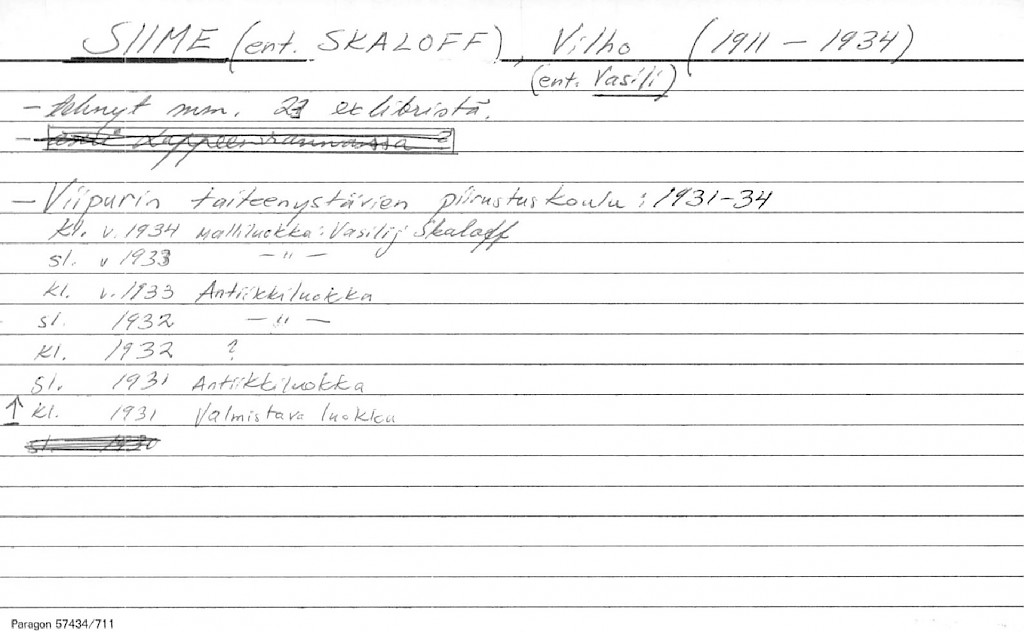 SIIME (ent. SKALOFF), Vilho (1911 - 1934)
(ent. Vasili)
- tehnyt mm. ex libristä.
- Lappeenrannassa ?
- Viipurin taiteenystävien piirustuskoulu: 1931-34
kl. v. 1934 Malliluokka: Vasilij Skaloff
sl. v 1933 - " -
kl. v. 1933 Antiikkiluokka
sl. 1932 - " -
kl. 1932 ?
sl. 1931 Antiikkiluokka
↑ kl. 1931 Valmistava luokka
sl. 1930
Paragon 57434/711